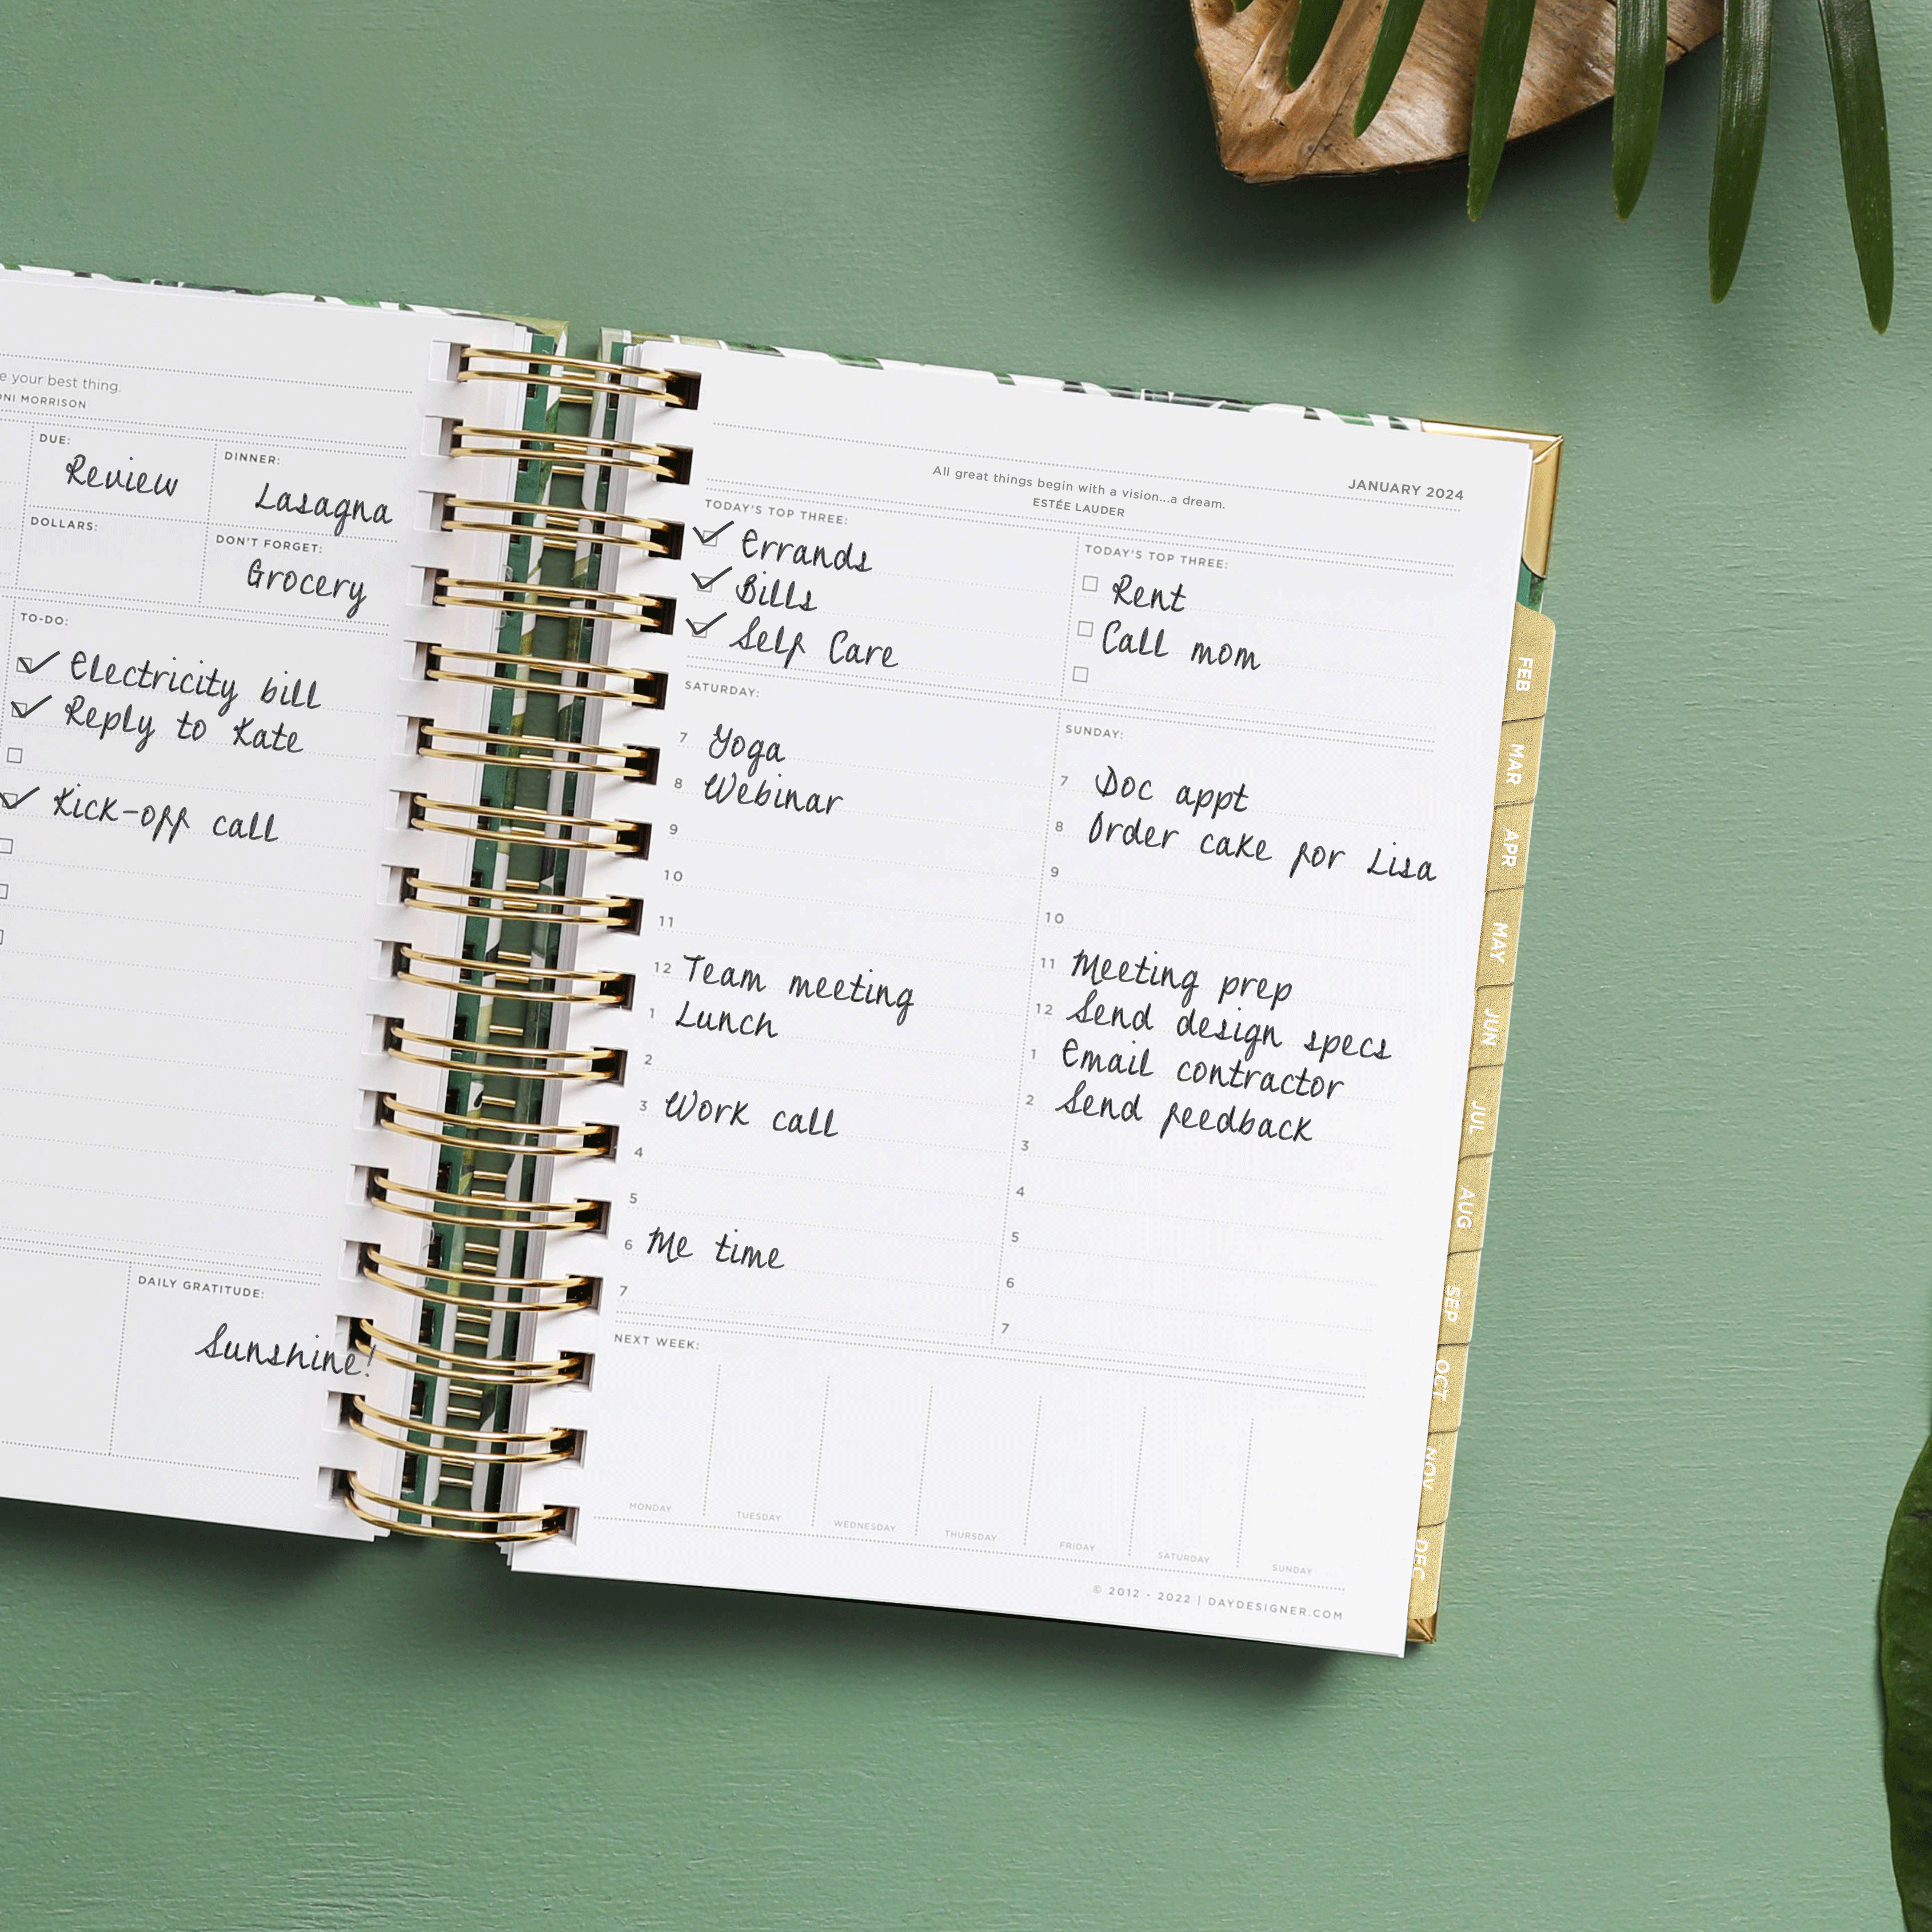 e your best thing.
ONI MORRISON
DUE:
Review
DINNER:
Lasagna
DOLLARS:
DON'T FORGET:
Grocery
TO-DO:
Electricity bill
Reply to Kate
Kick-off call
DAILY GRATITUDE:
Sunshine!
JANUARY 2024
All great things begin with a vision...a dream.
ESTÉE LAUDER
TODAY'S TOP THREE:
Errands
Bills
Self Care
TODAY'S TOP THREE:
Rent
Call mom
SATURDAY:
7 Yoga
8 Webinar
9
10
11
12 Team meeting
1 Lunch
2
3 Work call
4
5
6 Me time
7
SUNDAY:
7 Doc appt
8 Order cake for Lisa
9
10
11 Meeting prep
12 Send design specs
1 Email contractor
2 Send feedback
3
4
5
6
7
NEXT WEEK:
MONDAY
TUESDAY
WEDNESDAY
THURSDAY
FRIDAY
SATURDAY
SUNDAY
© 2012 - 2022 | DAYDESIGNER.COM
FEB
MAR
APR
MAY
JUN
JUL
AUG
SEP
OCT
NOV
DEC